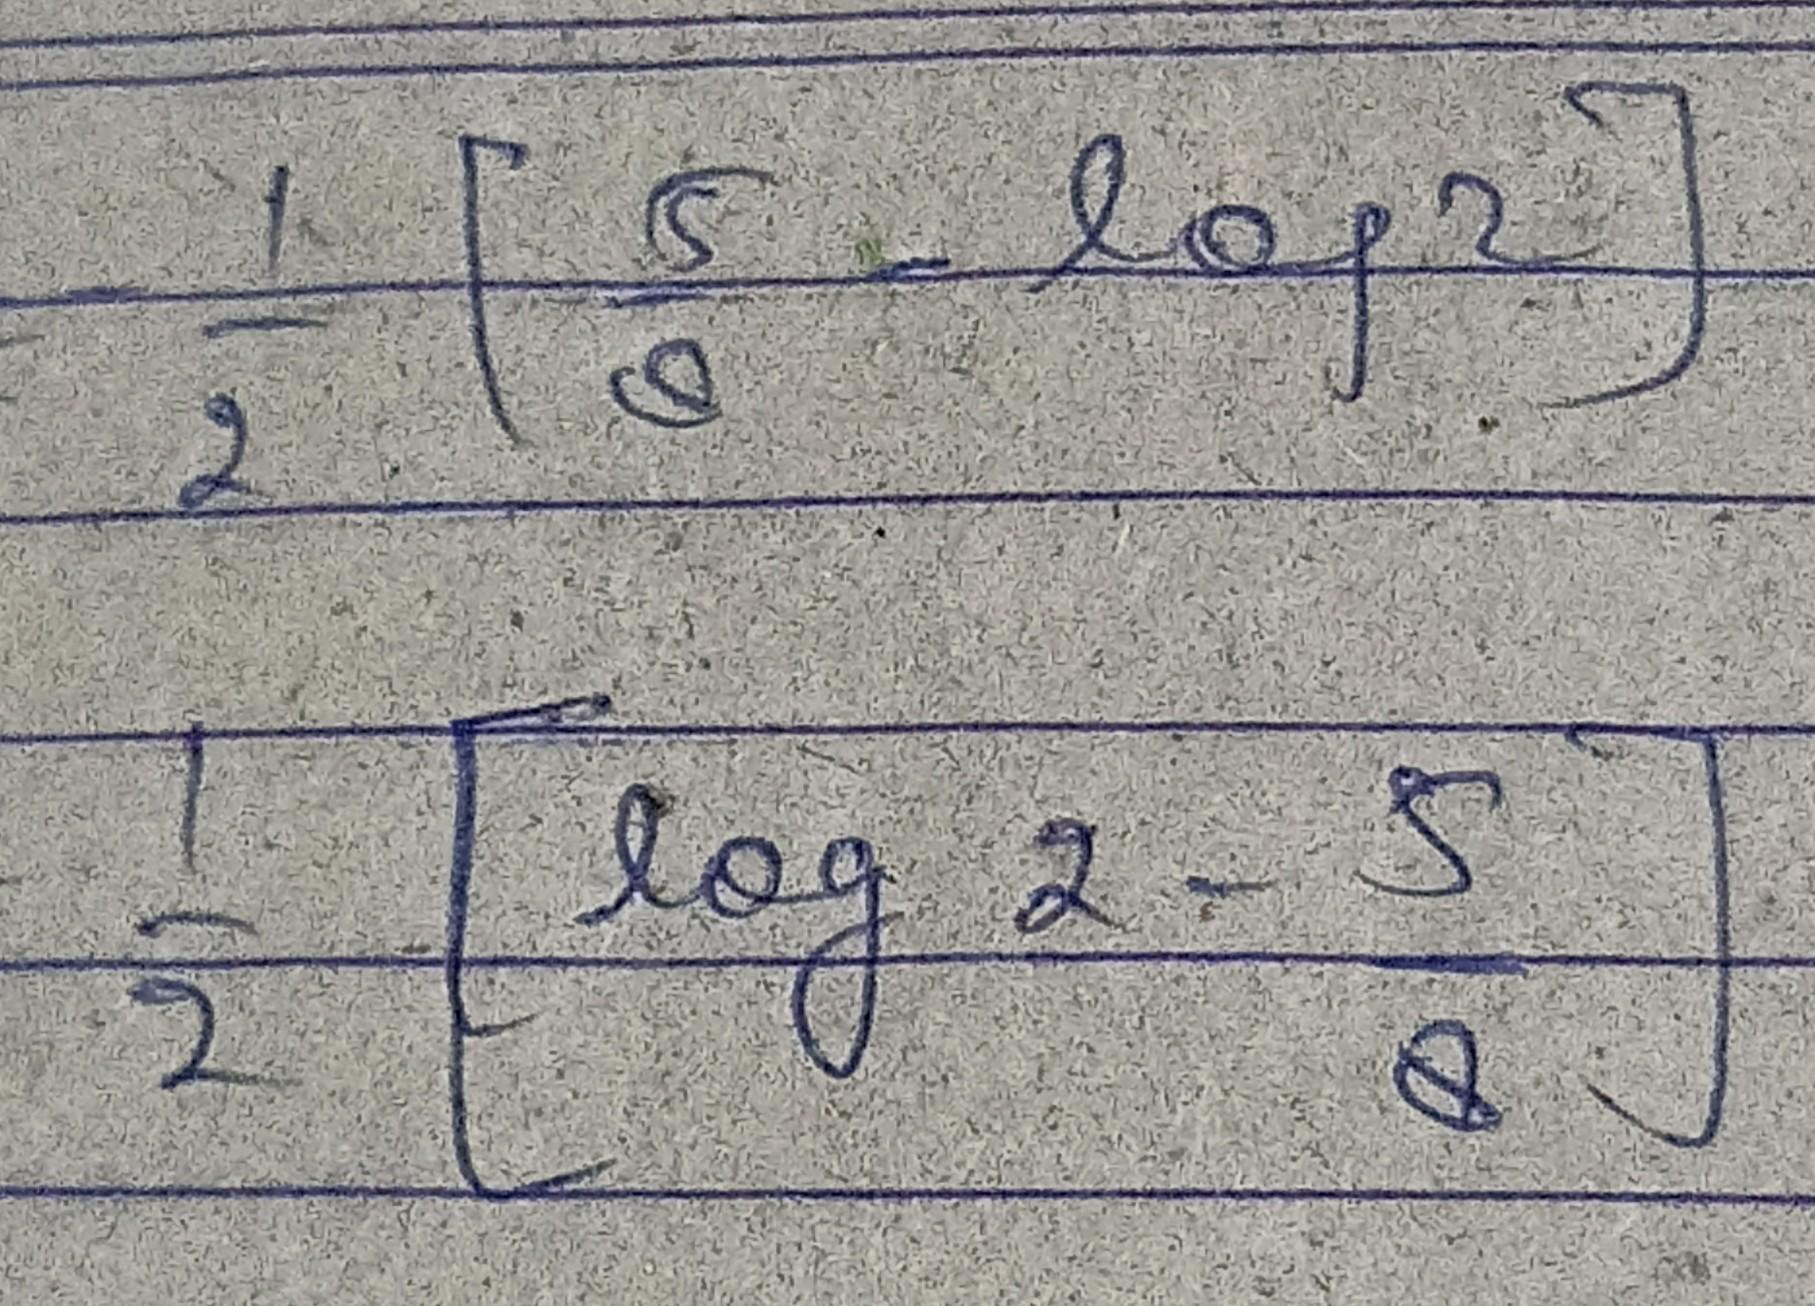 - 1/2 [ 5/8 - log 2 ]
1/2 [ log 2 - 5/8 ]